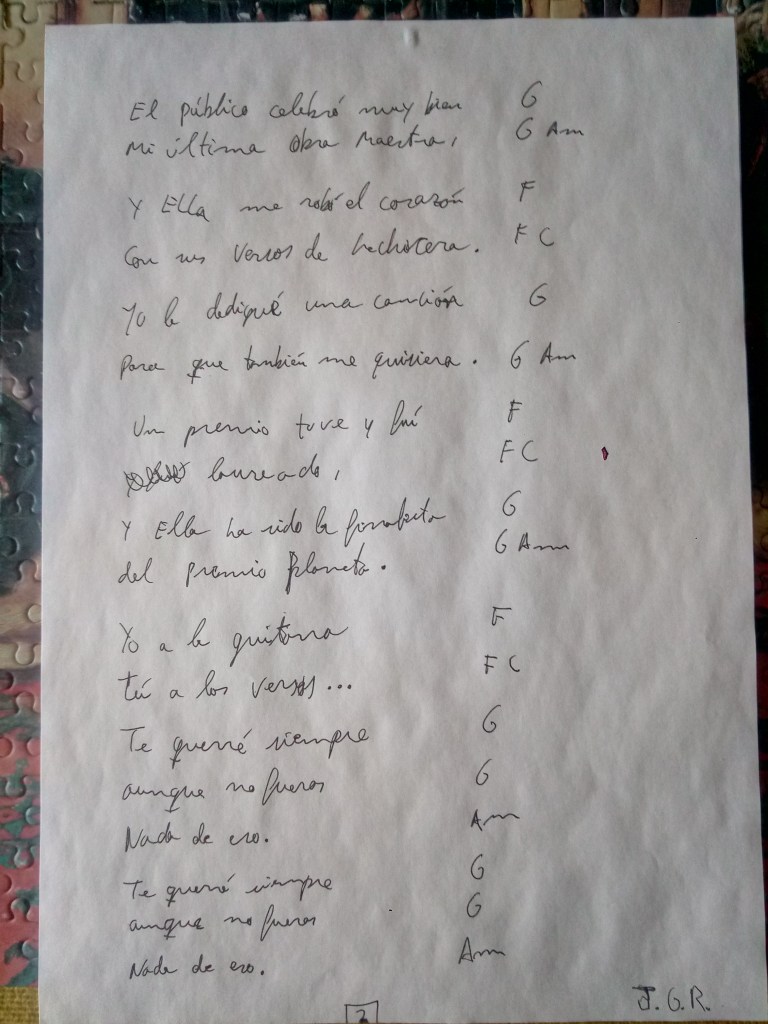 El público celebró muy bien G
Mi última obra maestra, G Am
Y Ella me robó el corazón F
Con sus versos de hechicera. F C
Yo le dediqué una canción G
para que también me quisiera. G Am
Un premio tuve y fuí F
laureado, F C
Y Ella ha sido la finalista G
del premio planeta. G Am
Yo a la guitarra F
tú a los versos... F C
Te querré siempre G
aunque no fueras G
Nada de eso. Am
Te querré siempre G
aunque no fueras G
Nada de eso. Am
J. G. R.
2